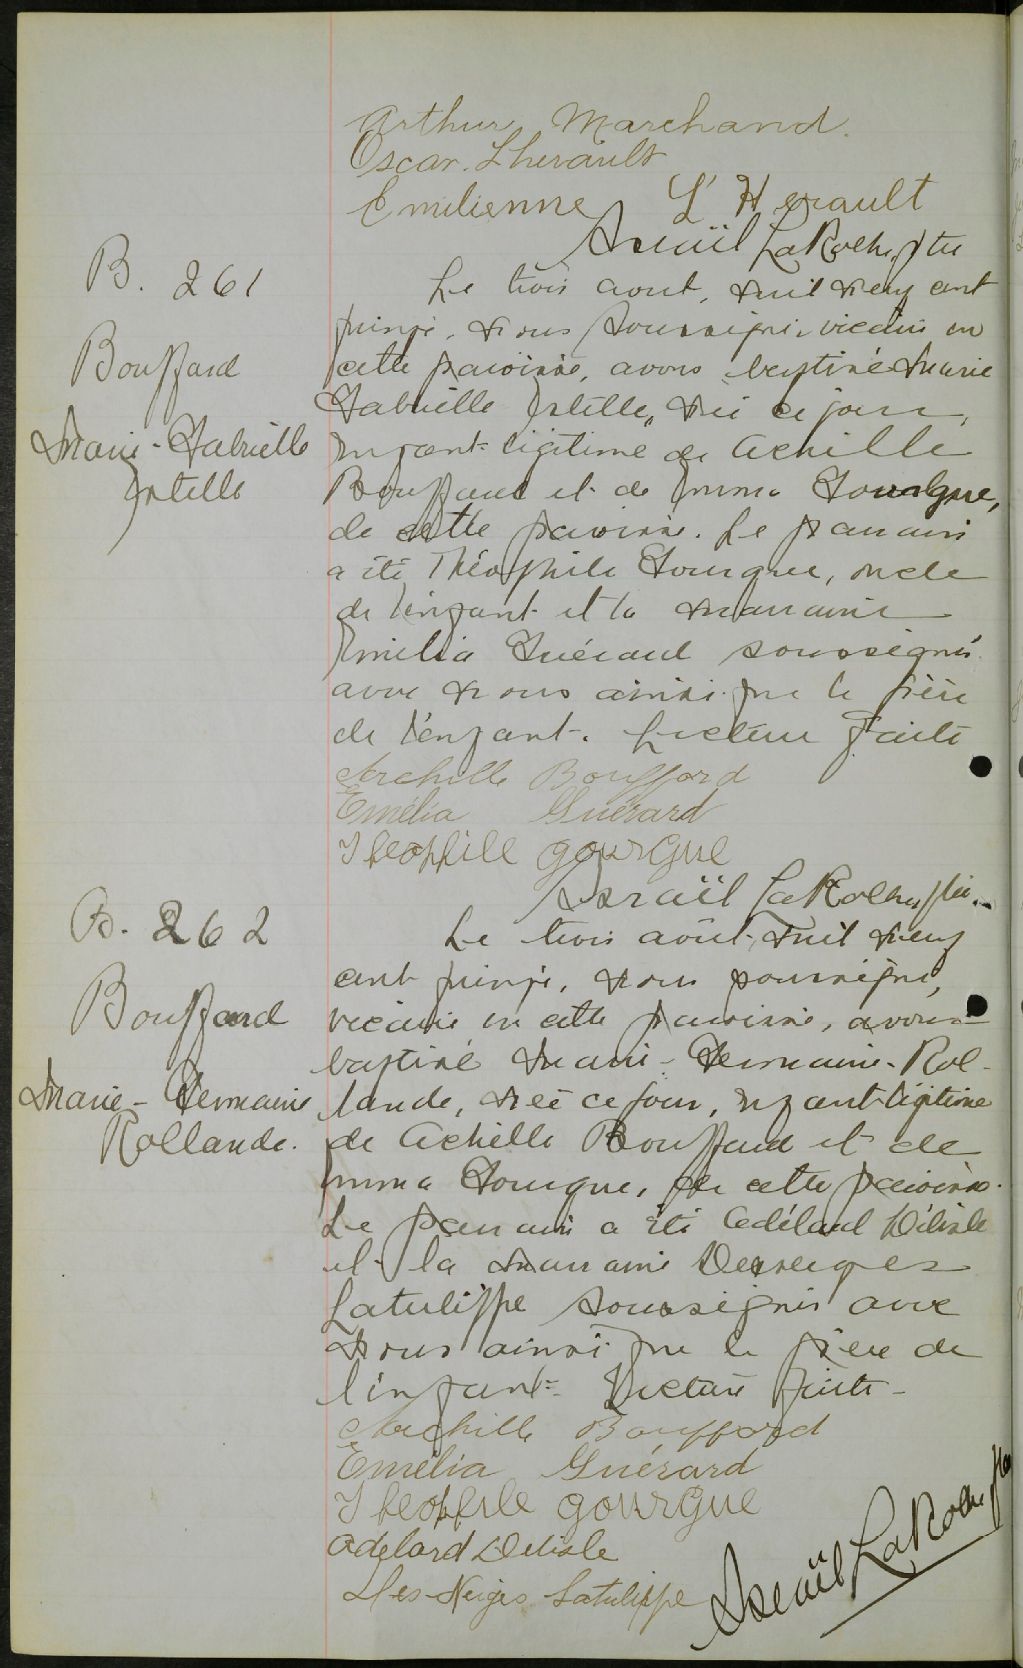 Arthur Marchand.
Oscar Lherault
Emilienne L'Herault
Israël LaRoche, ptre
B. 261
Bouffard
Marie-Gabrielle
Estelle
Le trois aout, mil neuf cent
quinze, nous soussigné, vicaire en
cette paroisse, avons baptisé Marie
Gabrielle Estelle, née ce jour,
enfant légitime de Achille
Bouffard et de Emma Gourgue,
de cette paroisse. Le parrain
a été Théophile Gourgue, oncle
de l'enfant et la marraine
Emilia Guérard soussignés
avec nous ainsi que le père
de l'enfant. Lecture faite
Archille Bouffard
Emélia Guérard
Theophile gourgue
Israël LaRoche, ptre.
B. 262
Bouffard
Marie-Germaine
Rollande.
Le trois août, mil neuf
cent quinze, nous soussigné,
vicaire en cette paroisse, avons
baptisé Marie-Germaine-Rol-
lande, née ce jour, enfant légitime
de Achille Bouffard et de
Emma Gourgue, de cette paroisse.
Le parrain a été Adélard Délisle
et la marraine Desneiges
Latulippe soussignés avec
nous ainsi que le père de
l'enfant. Lecture faite-
Archille Bouffard
Emélia Guérard
Theophile gourgue
Adelard Delisle
Des-Neiges Latulippe
Israël LaRoche ptre